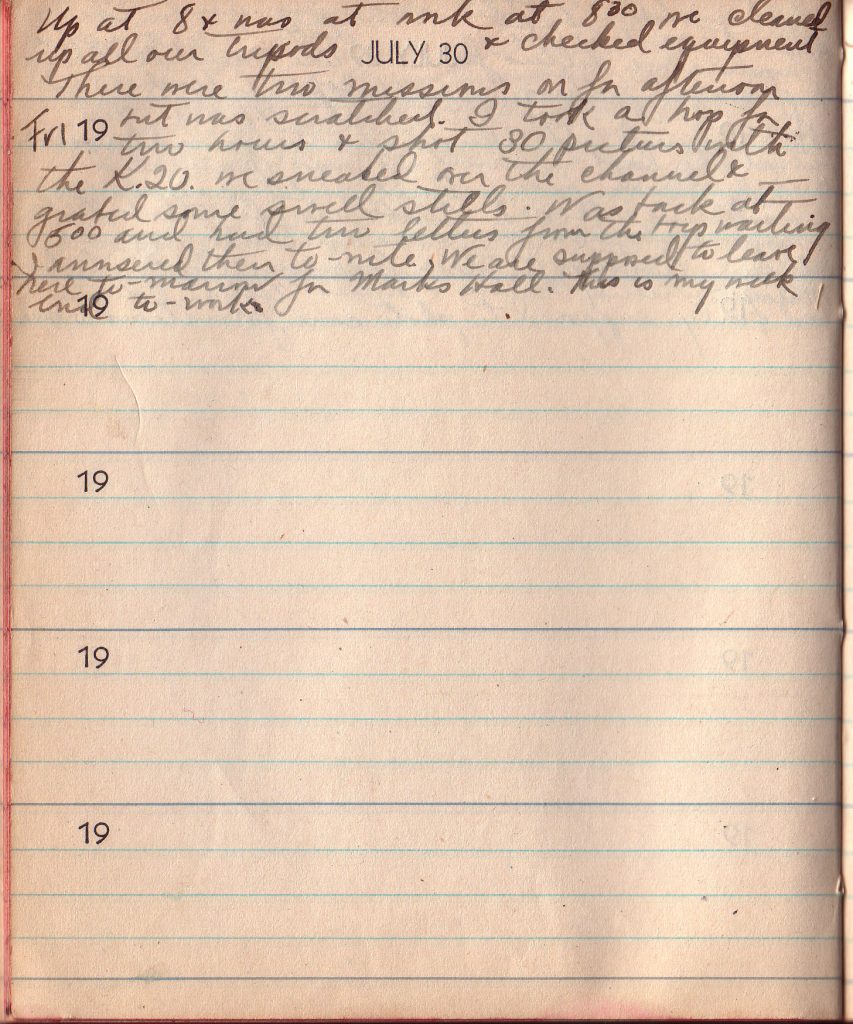 Up at 8 & was at work at 8³⁰ we cleaned
up all our tripods JULY 30 & checked equipment
There were two missions on for afternoon
but was scratched. I took a hop for
Fri 19 two hours & shot 30 pictures with
the K.20. we sneaked over the channel &
grabed some swell stills. Was back at
5⁰⁰ and had two letters from the boys waiting
I annsered them to-nite, We are supposed to leave
here to-marrow for Marks Hall. This is my week
19 to-work
19
19
19